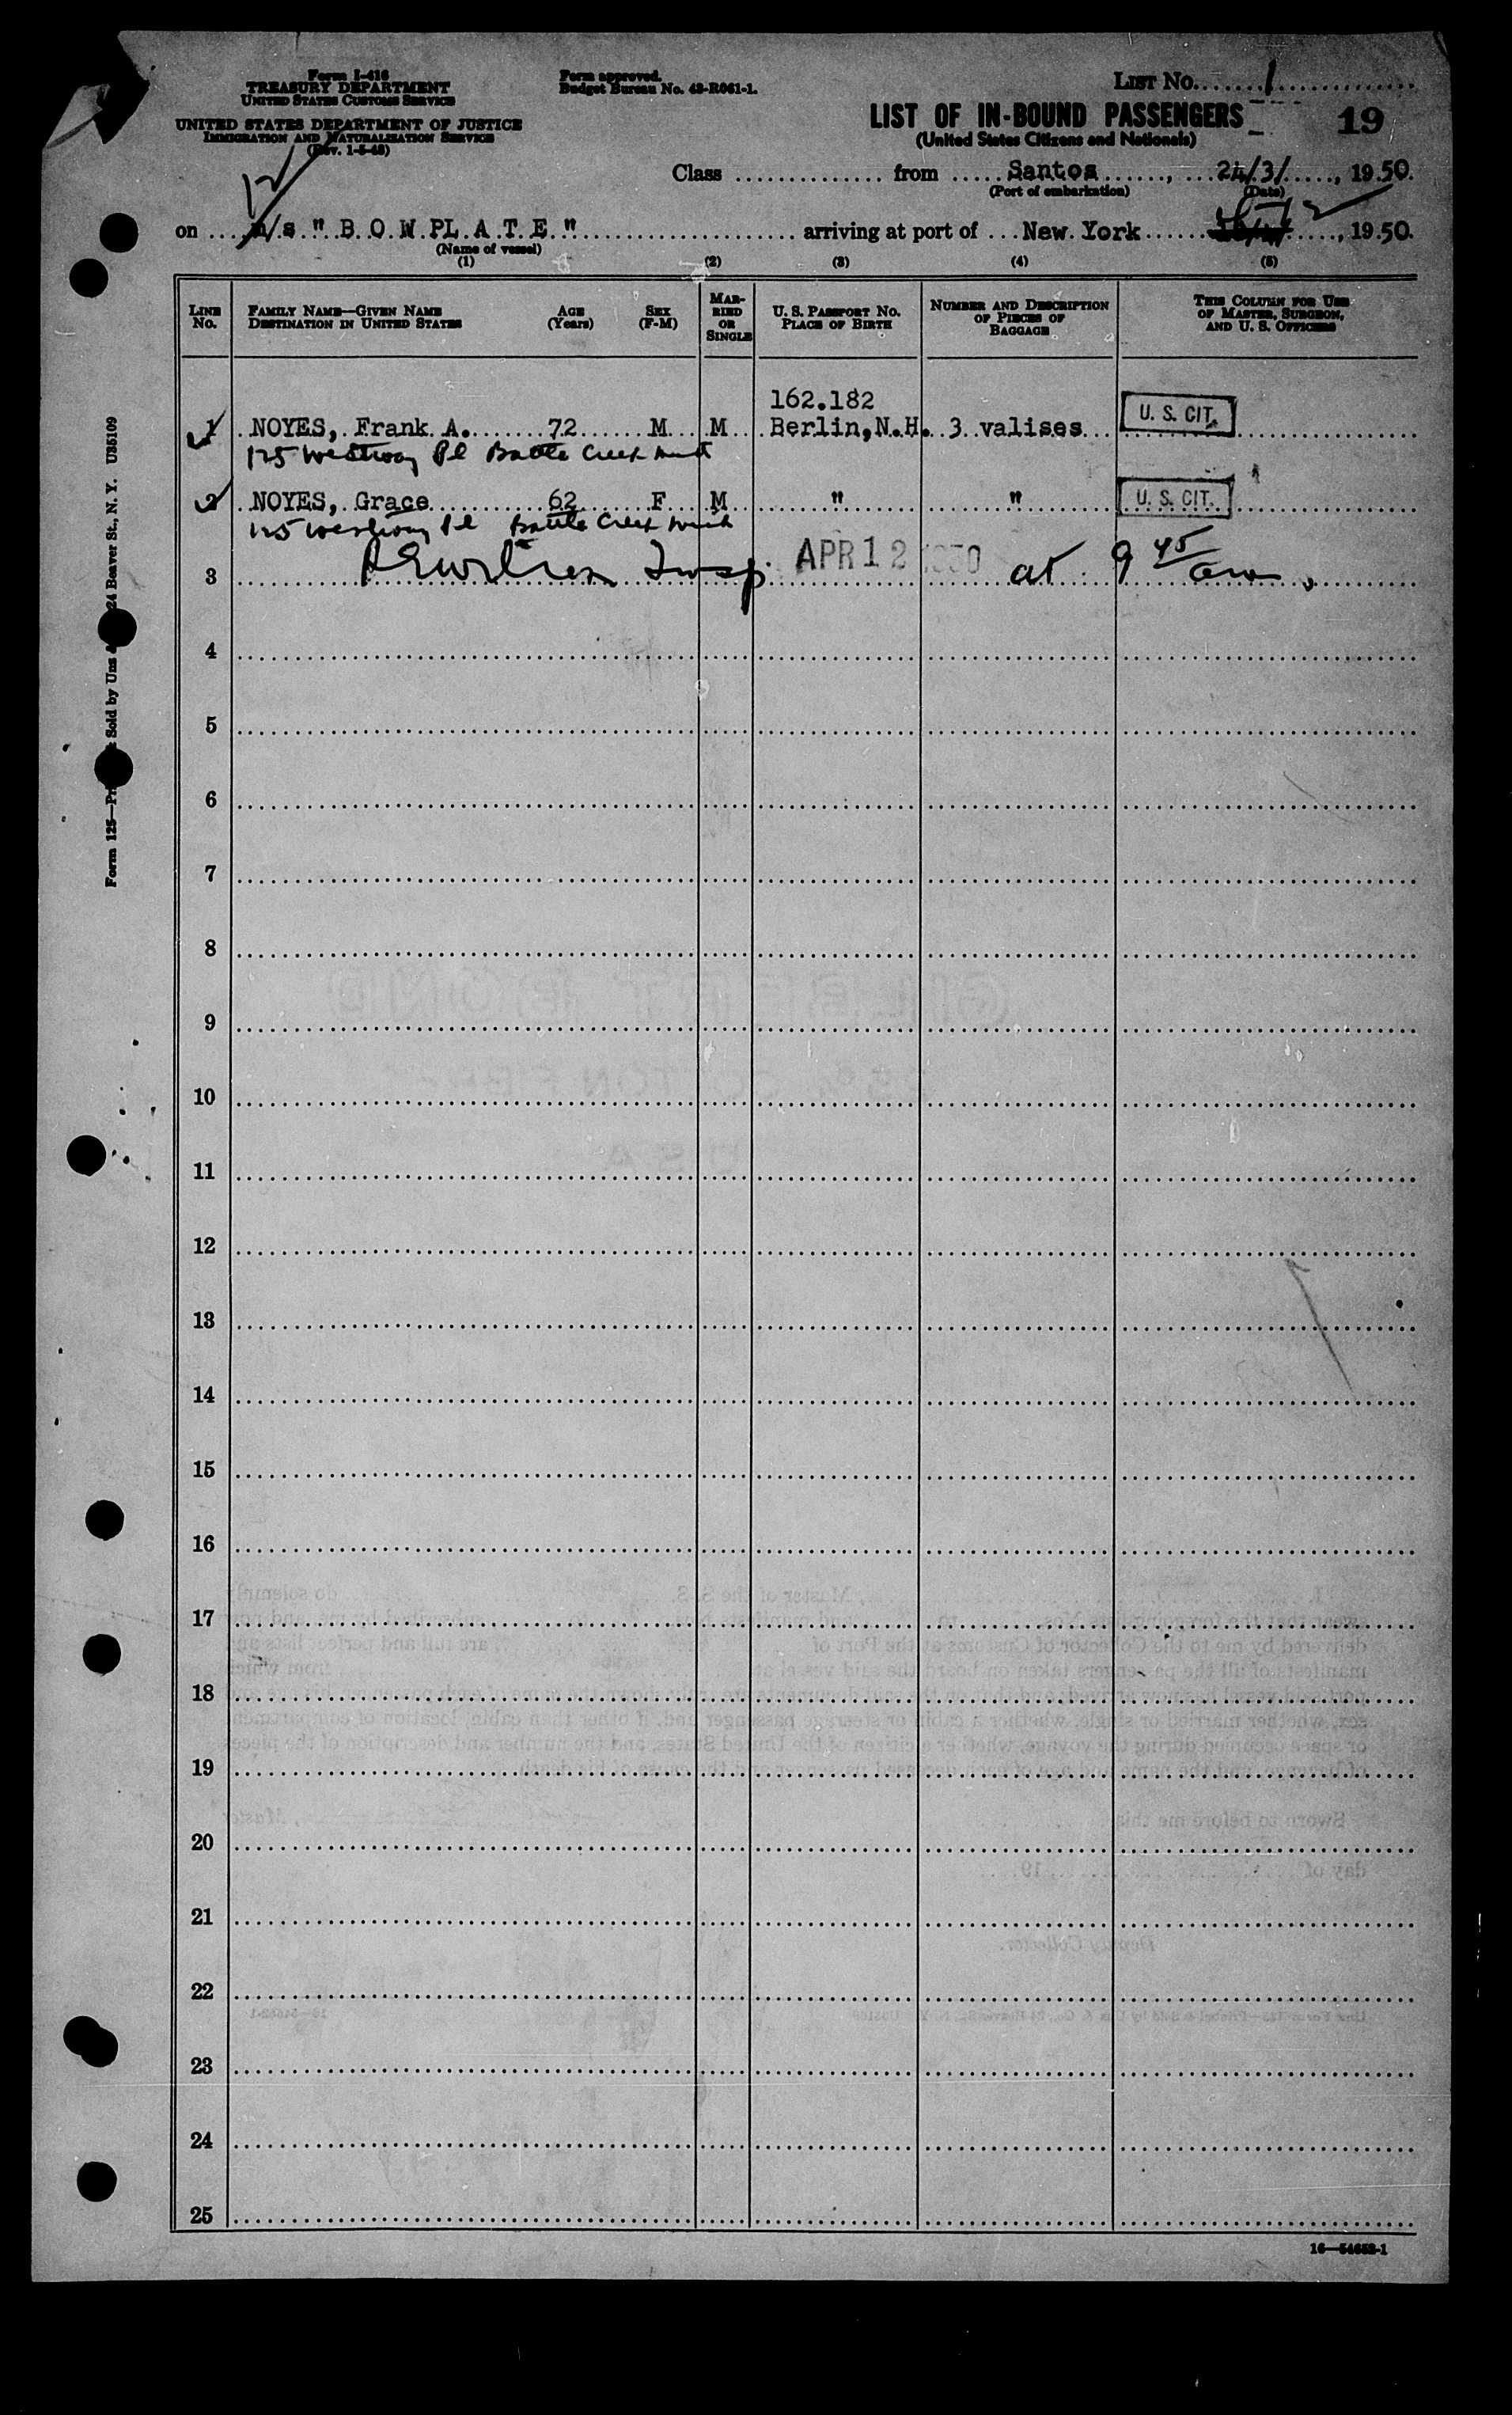 Form I-416
TREASURY DEPARTMENT
UNITED STATES CUSTOMS SERVICE
UNITED STATES DEPARTMENT OF JUSTICE
IMMIGRATION AND NATURALIZATION SERVICE
(Rev. 1-5-48)
Form approved.
Budget Bureau No. 43-R061-1.
LIST No. 1
LIST OF IN-BOUND PASSENGERS
19
(United States Citizens and Nationals)
Class from Santos, 24/3/, 1950.
(Port of embarkation) (Date)
on m/s "BOWPLATE" arriving at port of New York, 1950.
(Name of vessel)
(1) (2) (3) (4) (5)
LINE No. FAMILY NAME—GIVEN NAME DESTINATION IN UNITED STATES AGE (Years) SEX (F-M) MARRIED OR SINGLE U. S. PASSPORT No. PLACE OF BIRTH NUMBER AND DESCRIPTION OF PIECES OF BAGGAGE THIS COLUMN FOR USE OF MASTER, SURGEON, AND U. S. OFFICERS
162.182
1 NOYES, Frank A. 72 M M Berlin, N.H. 3 valises U. S. CIT.
125 Westway Pl Battle Creek Mich
2 NOYES, Grace 62 F M " " U. S. CIT.
125 Westway Pl Battle Creek Mich
3 Insp. APR 12 1950 at 9 45 am.
4
5
6
7
8
9
10
11
12
13
14
15
16
17
18
19
20
21
22
23
24
25
16—54652-1
Sold by Uns 24 Beaver St., N. Y. U35109
Form 125